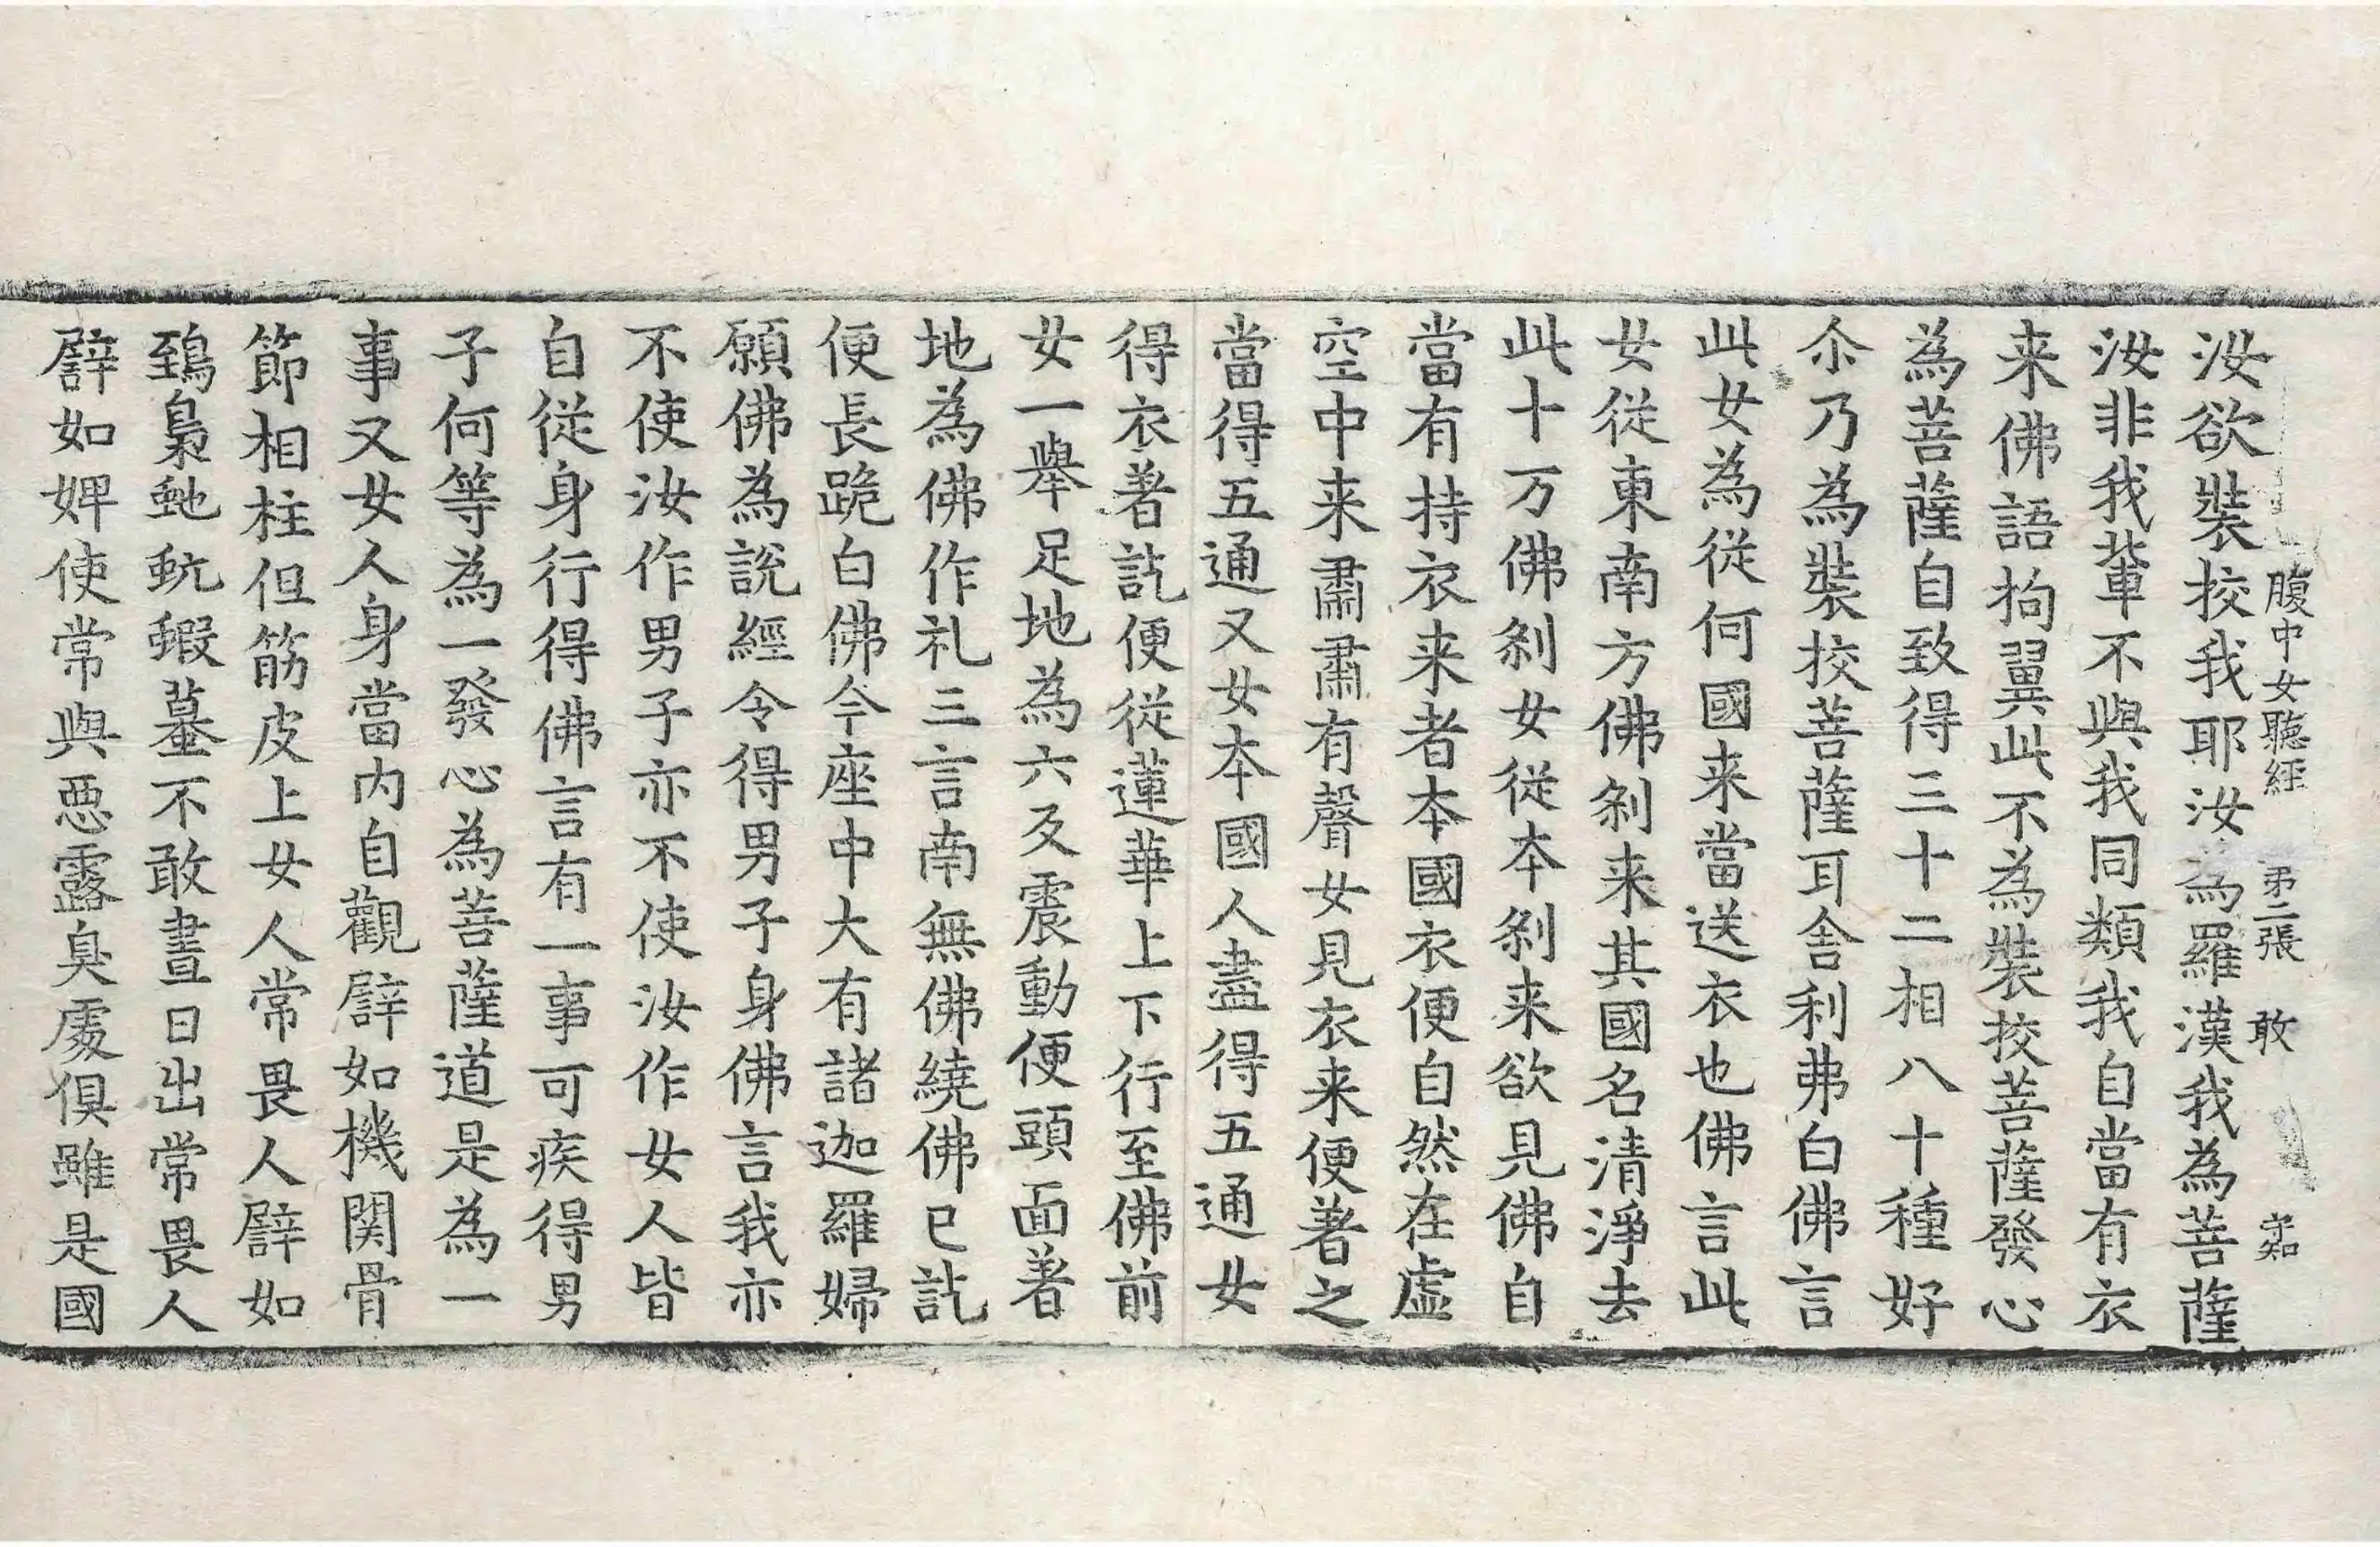 腹中女聽經 弟二張 敢 守知
汝欲裝挍我耶汝為羅漢我為菩薩
汝非我輩不與我同類我自當有衣
来佛語拘翼此不為裝挍菩薩發心
為菩薩自致得三十二相八十種好
尒乃為裝挍菩薩耳舍利弗白佛言
此女為從何國来當送衣也佛言此
女從東南方佛剎来其國名清淨去
此十万佛剎女從本剎来欲見佛自
當有持衣来者本國衣便自然在虛
空中来肅肅有聲女見衣来便著之
當得五通又女本國人盡得五通女
得衣著訖便從蓮華上下行至佛前
女一舉足地為六反震動便頭面著
地為佛作礼三言南無佛繞佛已訖
便長跪白佛今座中大有諸迦羅婦
願佛為說經令得男子身佛言我亦
不使汝作男子亦不使汝作女人皆
自從身行得佛言有一事可疾得男
子何等為一發心為菩薩道是為一
事又女人身當內自觀譬如機関骨
節相柱但筋皮上女人常畏人譬如
鵄梟虵蚖蝦蟇不敢晝日出常畏人
譬如婢使常與惡露臭處俱雖是國